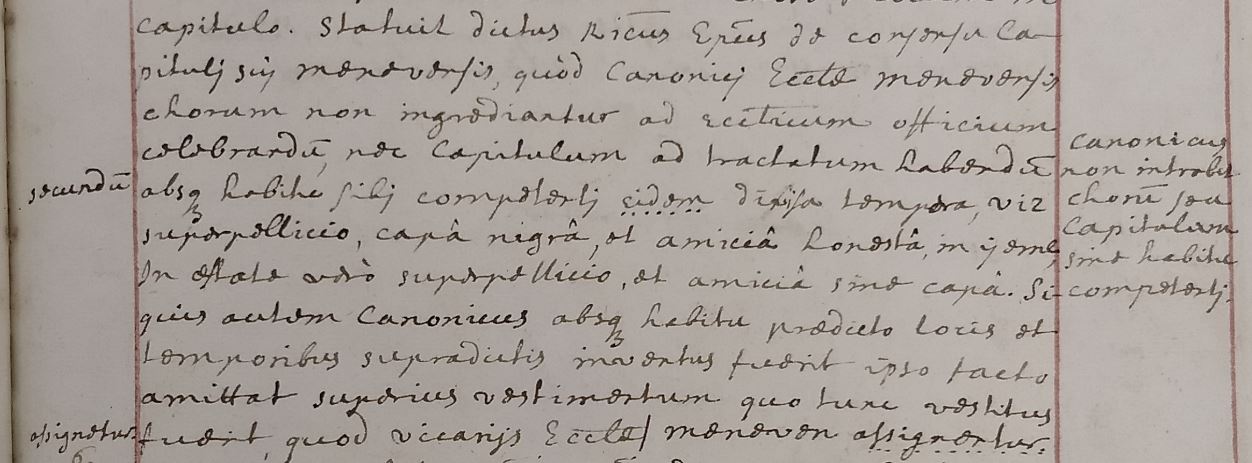 capitulo. Statuit dictus Ric̄us Ep̄us de consensu Ca-
pitulj suj menevensis, quòd Canonicj Eccl̄e menevensis
chorum non ingrediantur ad eccl̄icum officium
celebrandū, nec Capitulum ad tractatum habendū
absqꝫ habitu sibj competentj eidem divisa tempora, viz
superpellicio, capâ nigrâ, et amiciâ honestâ, in ijeme,
In æstate verò superpellicio, et amiciâ sine capâ. Si
quis autem Canonicus absqꝫ habitu prædicto locis et
temporibus supradictis inventus fuerit ipso facto
amittat superius vestimentum quo tunc vestitus
fuerit, quod vicarijs Eccl̄e meneven assignentur.
secundū
assignetur
canonicus
non intrabit
chorū seu
Capitulum
sine habitu
competentj.